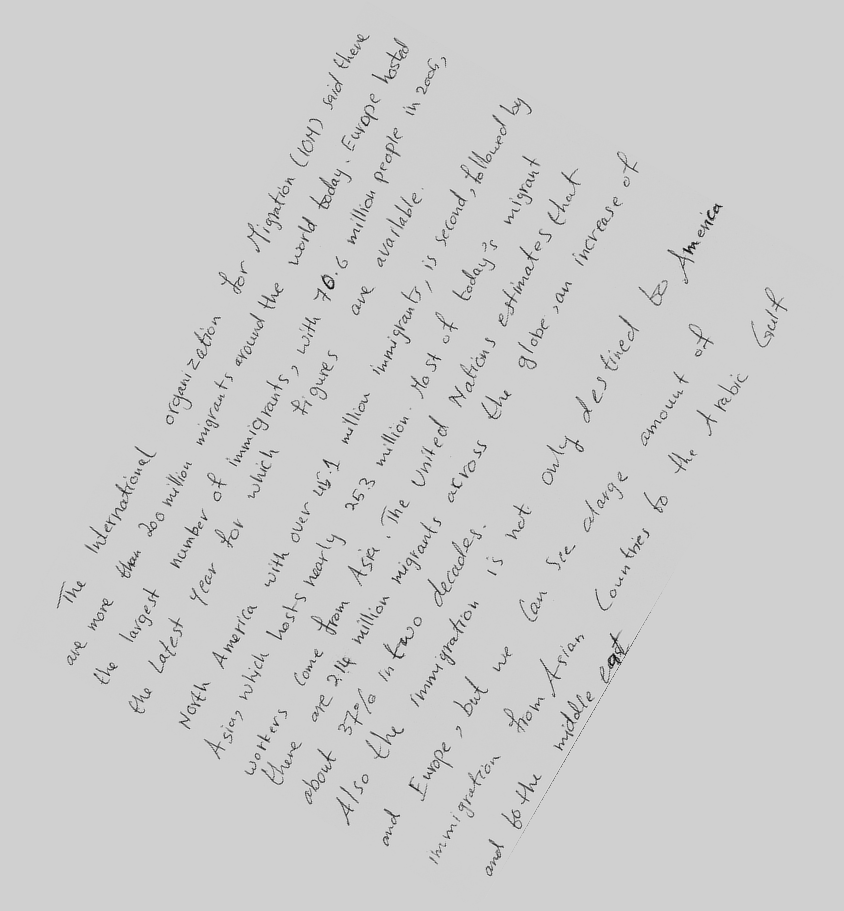 The International organization for Migration (IOM) said there
are more than 200 million migrants around the world today. Europe hosted
the largest number of immigrants, with 70.6 million people in 2005,
the Latest year for which figures are available.
North America with over 45.1 million immigrants, is second, followed by
Asia, which hosts nearly 25.3 million. Most of today's migrant
workers come from Asia. The United Nations estimates that
there are 214 million migrants across the globe, an increase of
about 37% in two decades.
Also the immigration is not only destined to America
and Europe, but we can see alarge amount of
immigration from Asian Countries to the Arabic Gulf
and to the middle east